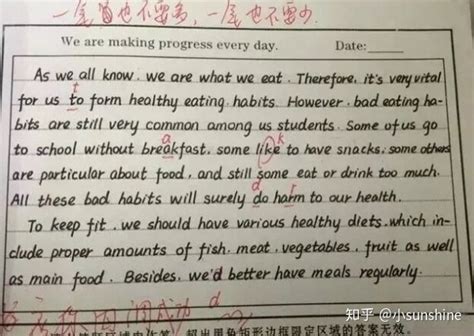 一尾當也不要多，一尾也不要少.
We are making progress every day. Date:
As we all know, we are what we eat. Therefore, it's very vital
t
for us to form healthy eating habits. However, bad eating ha-
bits are still very common among us students. Some of us go
a k
to school without breakfast, some like to have snacks, some others
are particular about food, and still some eat or drink too much.
d r
All these bad habits will surely do harm to our health.
To keep fit, we should have various healthy diets, which in-
clude proper amounts of fish, meat, vegetables, fruit as well
as main food. Besides, we'd better have meals regularly.
d
知乎 @小sunshine
超出黑色矩形边框限定区域的答案无效。